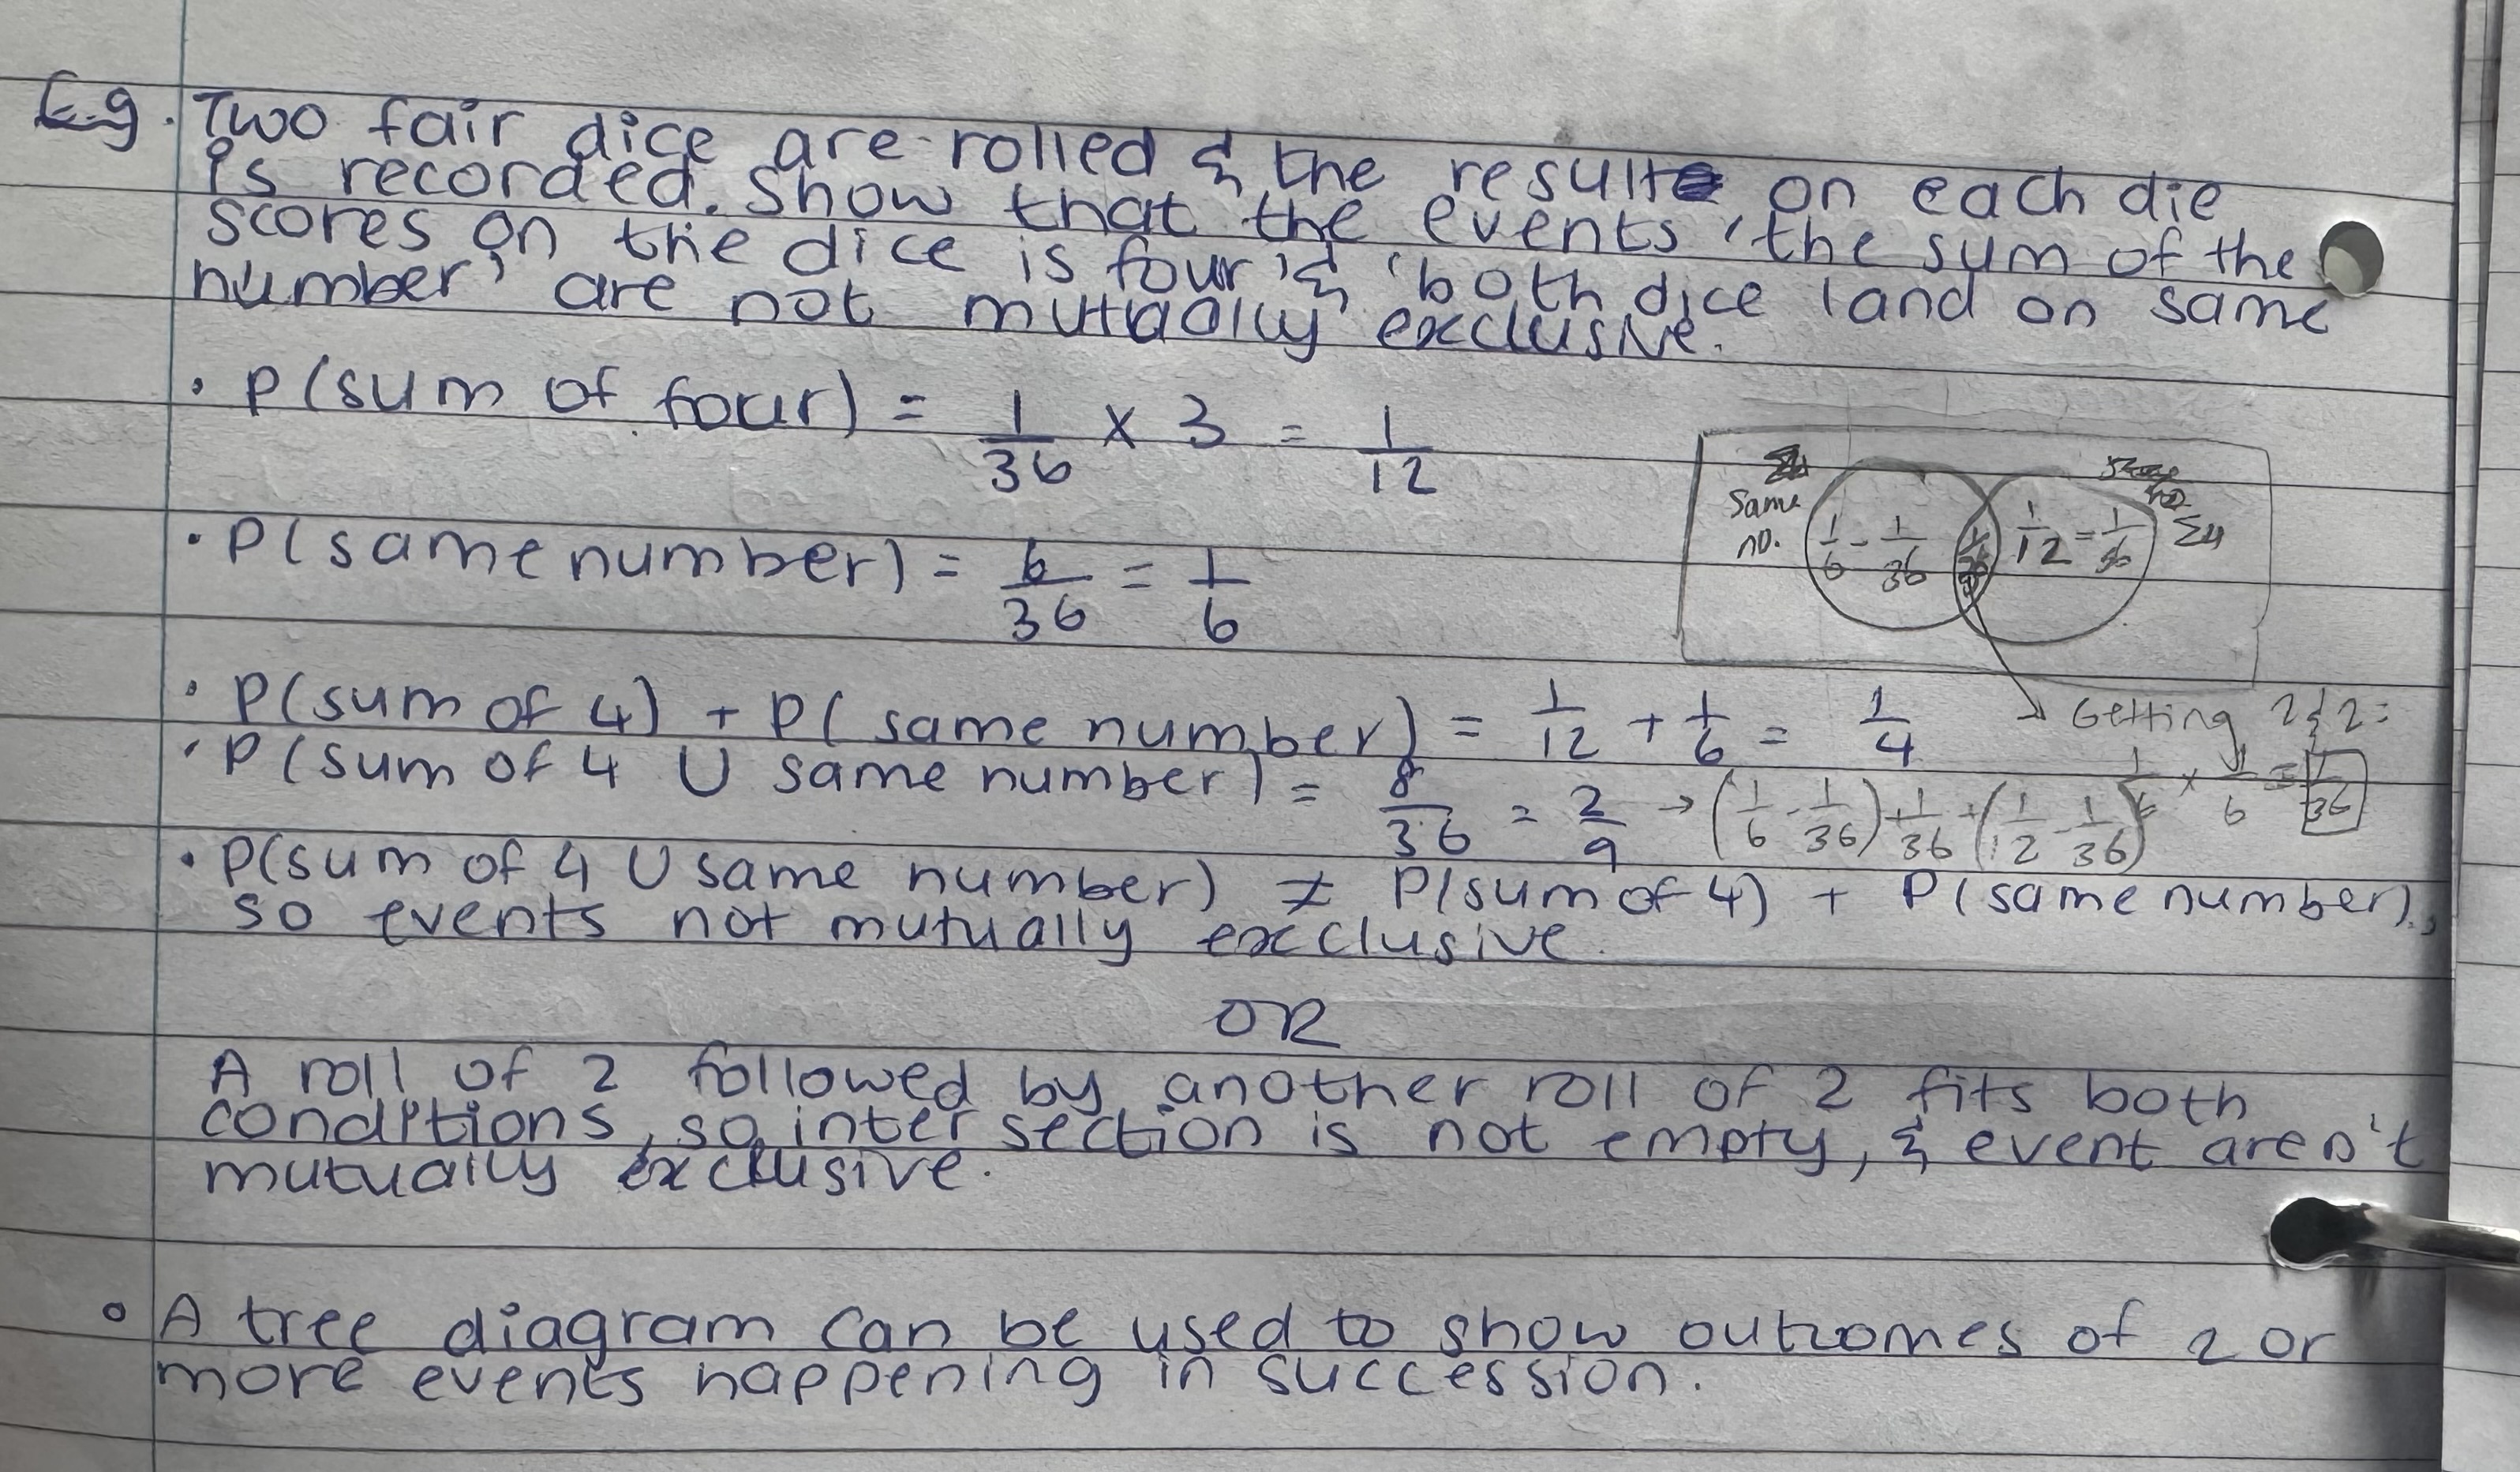 E.g. Two fair dice are rolled & the result on each die
is recorded. Show that the events 'the sum of the
scores on the dice is four' & 'both dice land on same
number' are not mutually exclusive.
• P(sum of four) = 1/36 × 3 = 1/12
Same no.
1/6 - 1/36
1/36
1/12 - 1/36
Σ4
• P(same number) = 6/36 = 1/6
• P(sum of 4) + P(same number) = 1/12 + 1/6 = 1/4
Getting 2 & 2 =
1/6 × 1/6 = 1/36
• P(sum of 4 ∪ same number) = 8/36 = 2/9 → (1/6 - 1/36) + 1/36 + (1/12 - 1/36)
• P(sum of 4 ∪ same number) ≠ P(sum of 4) + P(same number),
so events not mutually excclusive.
OR
A roll of 2 followed by another roll of 2 fits both
conditions, so intersection is not empty, & event aren't
mutually exclusive.
• A tree diagram can be used to show outcomes of 2 or
more events happening in succession.